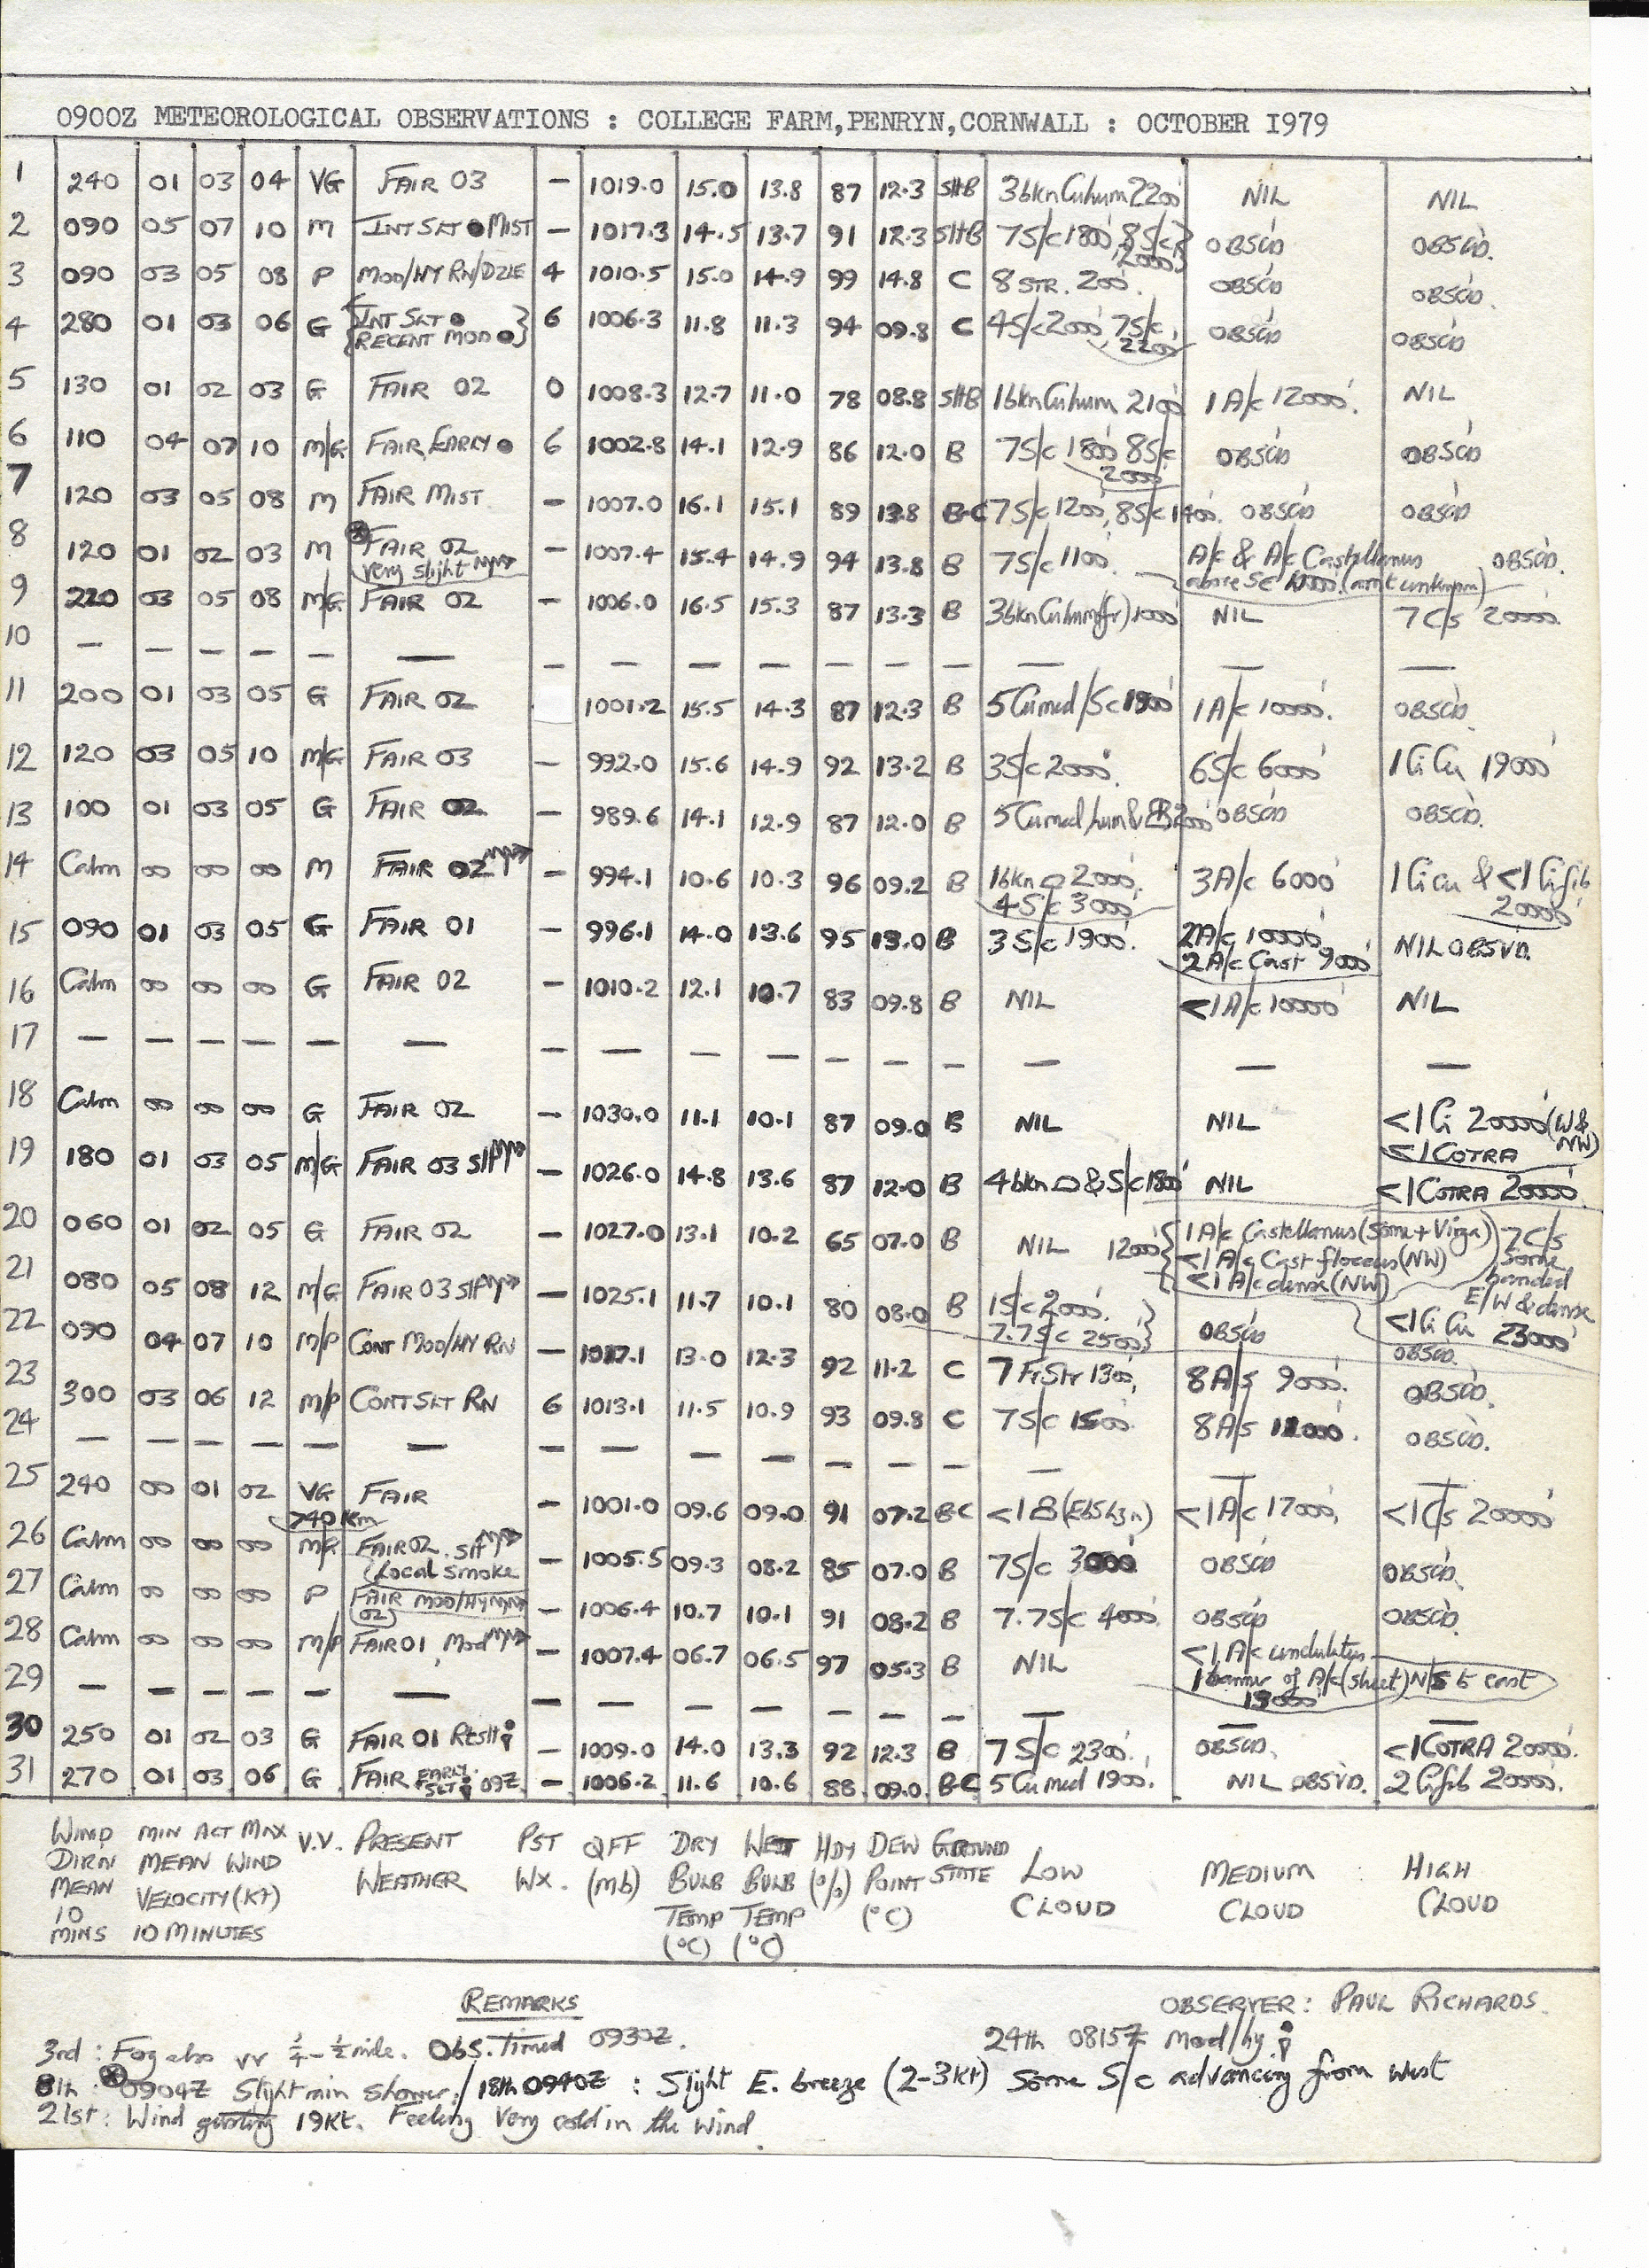 0900Z METEOROLOGICAL OBSERVATIONS : COLLEGE FARM,PENRYN,CORNWALL : OCTOBER I979
1 240 01 03 04 VG FAIR 03 — 1019.0 15.0 13.8 87 12.3 SHB 3bkn Cuhum 2200' NIL NIL
2 090 05 07 10 M INT SLT ● MIST — 1017.3 14.5 13.7 91 12.3 SHB 7S/c 1800' 8S/c 2000' OBSC'D OBSC'D.
3 090 03 05 08 P MOD/HY RN/DZLE 4 1010.5 15.0 14.9 99 14.8 C 8 STR. 200'. OBSC'D OBSC'D.
4 280 01 03 06 G {INT SLT ● RECENT MOD ●} 6 1006.3 11.8 11.3 94 09.8 C 4S/c 2000' 7S/c 2200' OBSC'D OBSC'D
5 130 01 02 03 G FAIR 02 0 1008.3 12.7 11.0 78 08.8 SHB 1bkn Cuhum 2100' 1 A/c 12000'. NIL
6 110 04 07 10 M/G FAIR, EARLY ● 6 1002.8 14.1 12.9 86 12.0 B 7S/c 1800' 8S/c 2000' OBSC'D OBSC'D
7 120 03 05 08 M FAIR MIST — 1007.0 16.1 15.1 89 13.8 B-C 7S/c 1200', 8S/c 1400'. OBSC'D OBSC'D
8 120 01 02 03 M ⊗ FAIR 02 very slight — 1007.4 15.4 14.9 94 13.8 B 7S/c 1100'. A/c & A/c Castellanus above Sc (amt unknown) OBSC'D.
9 220 03 05 08 M/G FAIR 02 — 1006.0 16.5 15.3 87 13.3 B 3bkn Cuhum(fr) 1000' NIL 7 C/s 20000'.
10 — — — — — — — — — — — — — — — —
11 200 01 03 05 G FAIR 02 1001.2 15.5 14.3 87 12.3 B 5 Cu med/Sc 1900' 1 A/c 10000'. OBSC'D.
12 120 03 05 10 M/G FAIR 03 — 992.0 15.6 14.9 92 13.2 B 3S/c 2000'. 6S/c 6000' 1 Ci Cu 19000'
13 100 01 03 05 G FAIR 02 — 989.6 14.1 12.9 87 12.0 B 5 Cu med/hum & OBSC'D OBSC'D.
14 Calm 00 00 00 M FAIR 02 — 994.1 10.6 10.3 96 09.2 B 1bkn 2000', 4S/c 3000' 3A/c 6000' 1 Ci cu & <1 Ci fib 20000'
15 090 01 03 05 G FAIR 01 — 996.1 14.0 13.6 95 13.0 B 3 S/c 1900'. 2A/c 10000' 2 A/c Cast 9000' NIL OBSV'D.
16 Calm 00 00 00 G FAIR 02 — 1010.2 12.1 10.7 83 09.8 B NIL <1 A/c 10000' NIL
17 — — — — — — — — — — — — — — — —
18 Calm 00 00 00 G FAIR 02 — 1030.0 11.1 10.1 87 09.0 B NIL NIL <1 Ci 20000' (W & NW) <1 COTRA
19 180 01 03 05 M/G FAIR 03 Slt — 1026.0 14.8 13.6 87 12.0 B 4bkn & S/c 1800' NIL <1 COTRA 20000'
20 060 01 02 05 G FAIR 02 — 1027.0 13.1 10.2 65 07.0 B NIL 12000' {1 A/c Castellanus (Some + Virga) <1 A/c Cast floccus (NW) <1 A/c dense (NW) 7 C/s Some banded E/W & dense 23000'
21 080 05 08 12 M/G FAIR 03 Slt — 1025.1 11.7 10.1 80 08.0 B 1S/c 2000'. 7.7S/c 2500'} OBSC'D <1 Ci Cu
22 090 04 07 10 M/P CONT MOD/HY RN — 1017.1 13.0 12.3 92 11.2 C 7 FrStr 1300', 8A/s 9000'. OBSC'D.
23 300 03 06 12 M/P CONT SLT RN 6 1013.1 11.5 10.9 93 09.8 C 7S/c 1500' 8A/s 12000'. OBSC'D.
24 — — — — — — — — — — — — — — — —
25 240 00 01 02 VG >40 Km FAIR — 1001.0 09.6 09.0 91 07.2 B-C <1 <1 A/c 17000', <1 C/s 20000'
26 Calm 00 00 00 M/G FAIR 02. Slt (Local Smoke — 1005.5 09.3 08.2 85 07.0 B 7S/c 3000' OBSC'D OBSC'D.
27 Calm 00 00 00 P FAIR MOD/HY 02) — 1006.4 10.7 10.1 91 08.2 B 7.7S/c 4000'. OBSC'D OBSC'D.
28 Calm 00 00 00 M/P FAIR 01, Mod — 1007.4 06.7 06.5 97 05.3 B NIL <1 A/c undulatus 1 banner of A/c (sheet) N/S E east 13000'
29 — — — — — — — — — — — — — — — —
30 250 01 02 03 G FAIR 01 — 1009.0 14.0 13.3 92 12.3 B 7 S/c 2300'. OBSC'D. <1 COTRA 20000'.
31 270 01 03 06 G FAIR EARLY SLT 09Z. — 1006.2 11.6 10.6 88 09.0 B-C 5 Cu med 1900'. NIL OBSV'D. 2 Ci fib 20000'.
WIND MIN ACT MAX V.V. PRESENT PST QFF DRY WET HDY DEW GROUND
DIRN MEAN WIND WEATHER WX. (mb) BULB BULB (%) POINT STATE LOW MEDIUM HIGH
MEAN VELOCITY (Kt) TEMP TEMP (°C) CLOUD CLOUD CLOUD
10
MINS 10 MINUTES (°C) (°C)
REMARKS
OBSERVER: PAUL RICHARDS.
3rd : Fog also vv ¼-½ mile. Obs. Timed 0930Z. 24th 0815Z Mod/hy
8th : ⊗ 0904Z Slight rain shower./ 18th 0940Z : Slight E. breeze (2-3Kt) Some S/c advancing from West
21st : Wind gusting 19Kt. Feeling Very cold in the Wind.